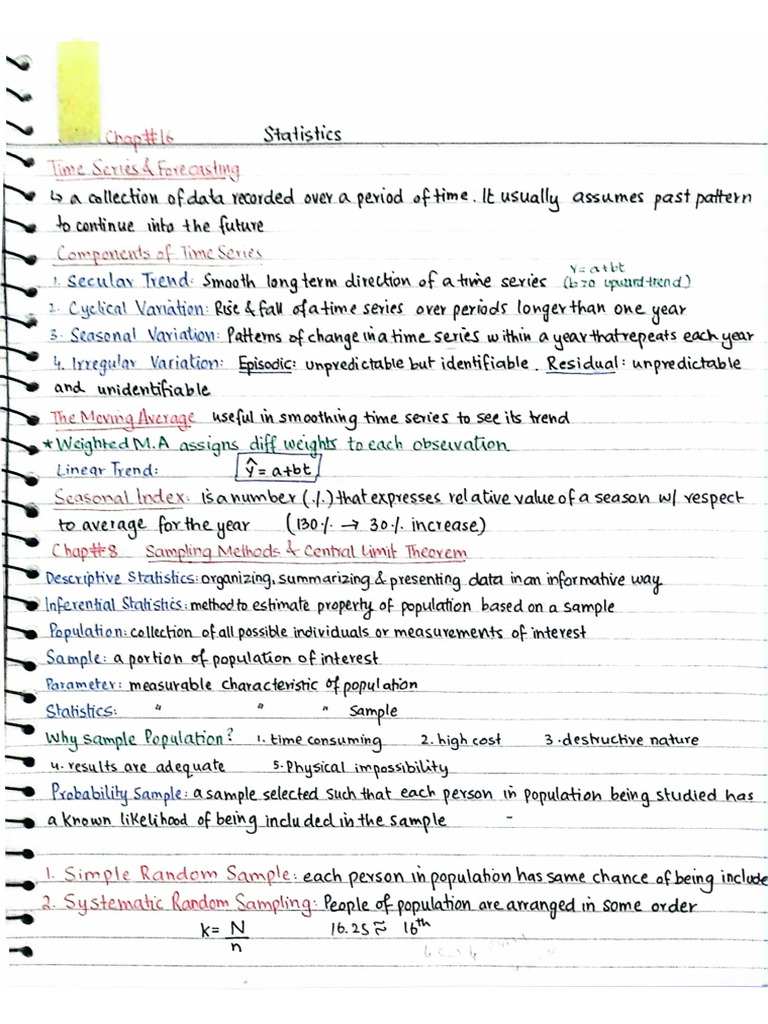 Chap#16 Statistics
Time Series & Forecasting
↳ a collection of data recorded over a period of time. It usually assumes past pattern
to continue into the future
Components of Time Series
Y = a+bt
1. Secular Trend: Smooth long term direction of a time series (b>0 upward trend)
2. Cyclical Variation: Rise & fall of a time series over periods longer than one year
3. Seasonal Variation: Patterns of change in a time series within a year that repeats each year
4. Irregular Variation: Episodic: unpredictable but identifiable. Residual: unpredictable
and unidentifiable
The Moving Average useful in smoothing time series to see its trend
* Weighted M.A assigns diff weights to each observation
Linear Trend: Ŷ = a+bt
Seasonal Index: is a number (%) that expresses relative value of a season w/ respect
to average for the year (130% → 30% increase)
Chap#8 Sampling Methods & Central Limit Theorem
Descriptive Statistics: organizing, summarizing & presenting data in an informative way
Inferential Statistics: method to estimate property of population based on a sample
Population: collection of all possible individuals or measurements of interest
Sample: a portion of population of interest
Parameter: measurable characteristic of population
Statistics: " " " sample
Why Sample Population? 1. time consuming 2. high cost 3. destructive nature
4. results are adequate 5. Physical impossibility
Probability Sample: a sample selected such that each person in population being studied has
a known likelihood of being included in the sample
1. Simple Random Sample: each person in population has same chance of being include
2. Systematic Random Sampling: People of population are arranged in some order
k = N/n 16.25 ≈ 16th